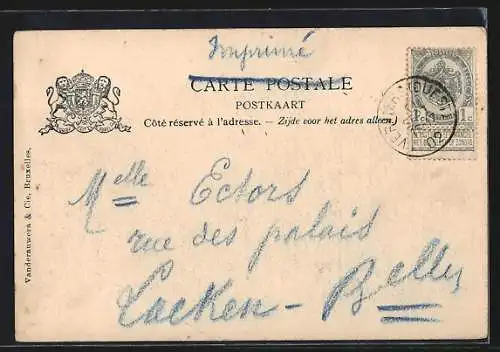 Imprimé
CARTE POSTALE
POSTKAART
Côté réservé à l'adresse. — Zijde voor het adres alleen.
1c 1c
VERVIERS (OUEST)
Melle Ectors
rue des palais
Laeken-Belles
Vanderauwera & Cie, Bruxelles.